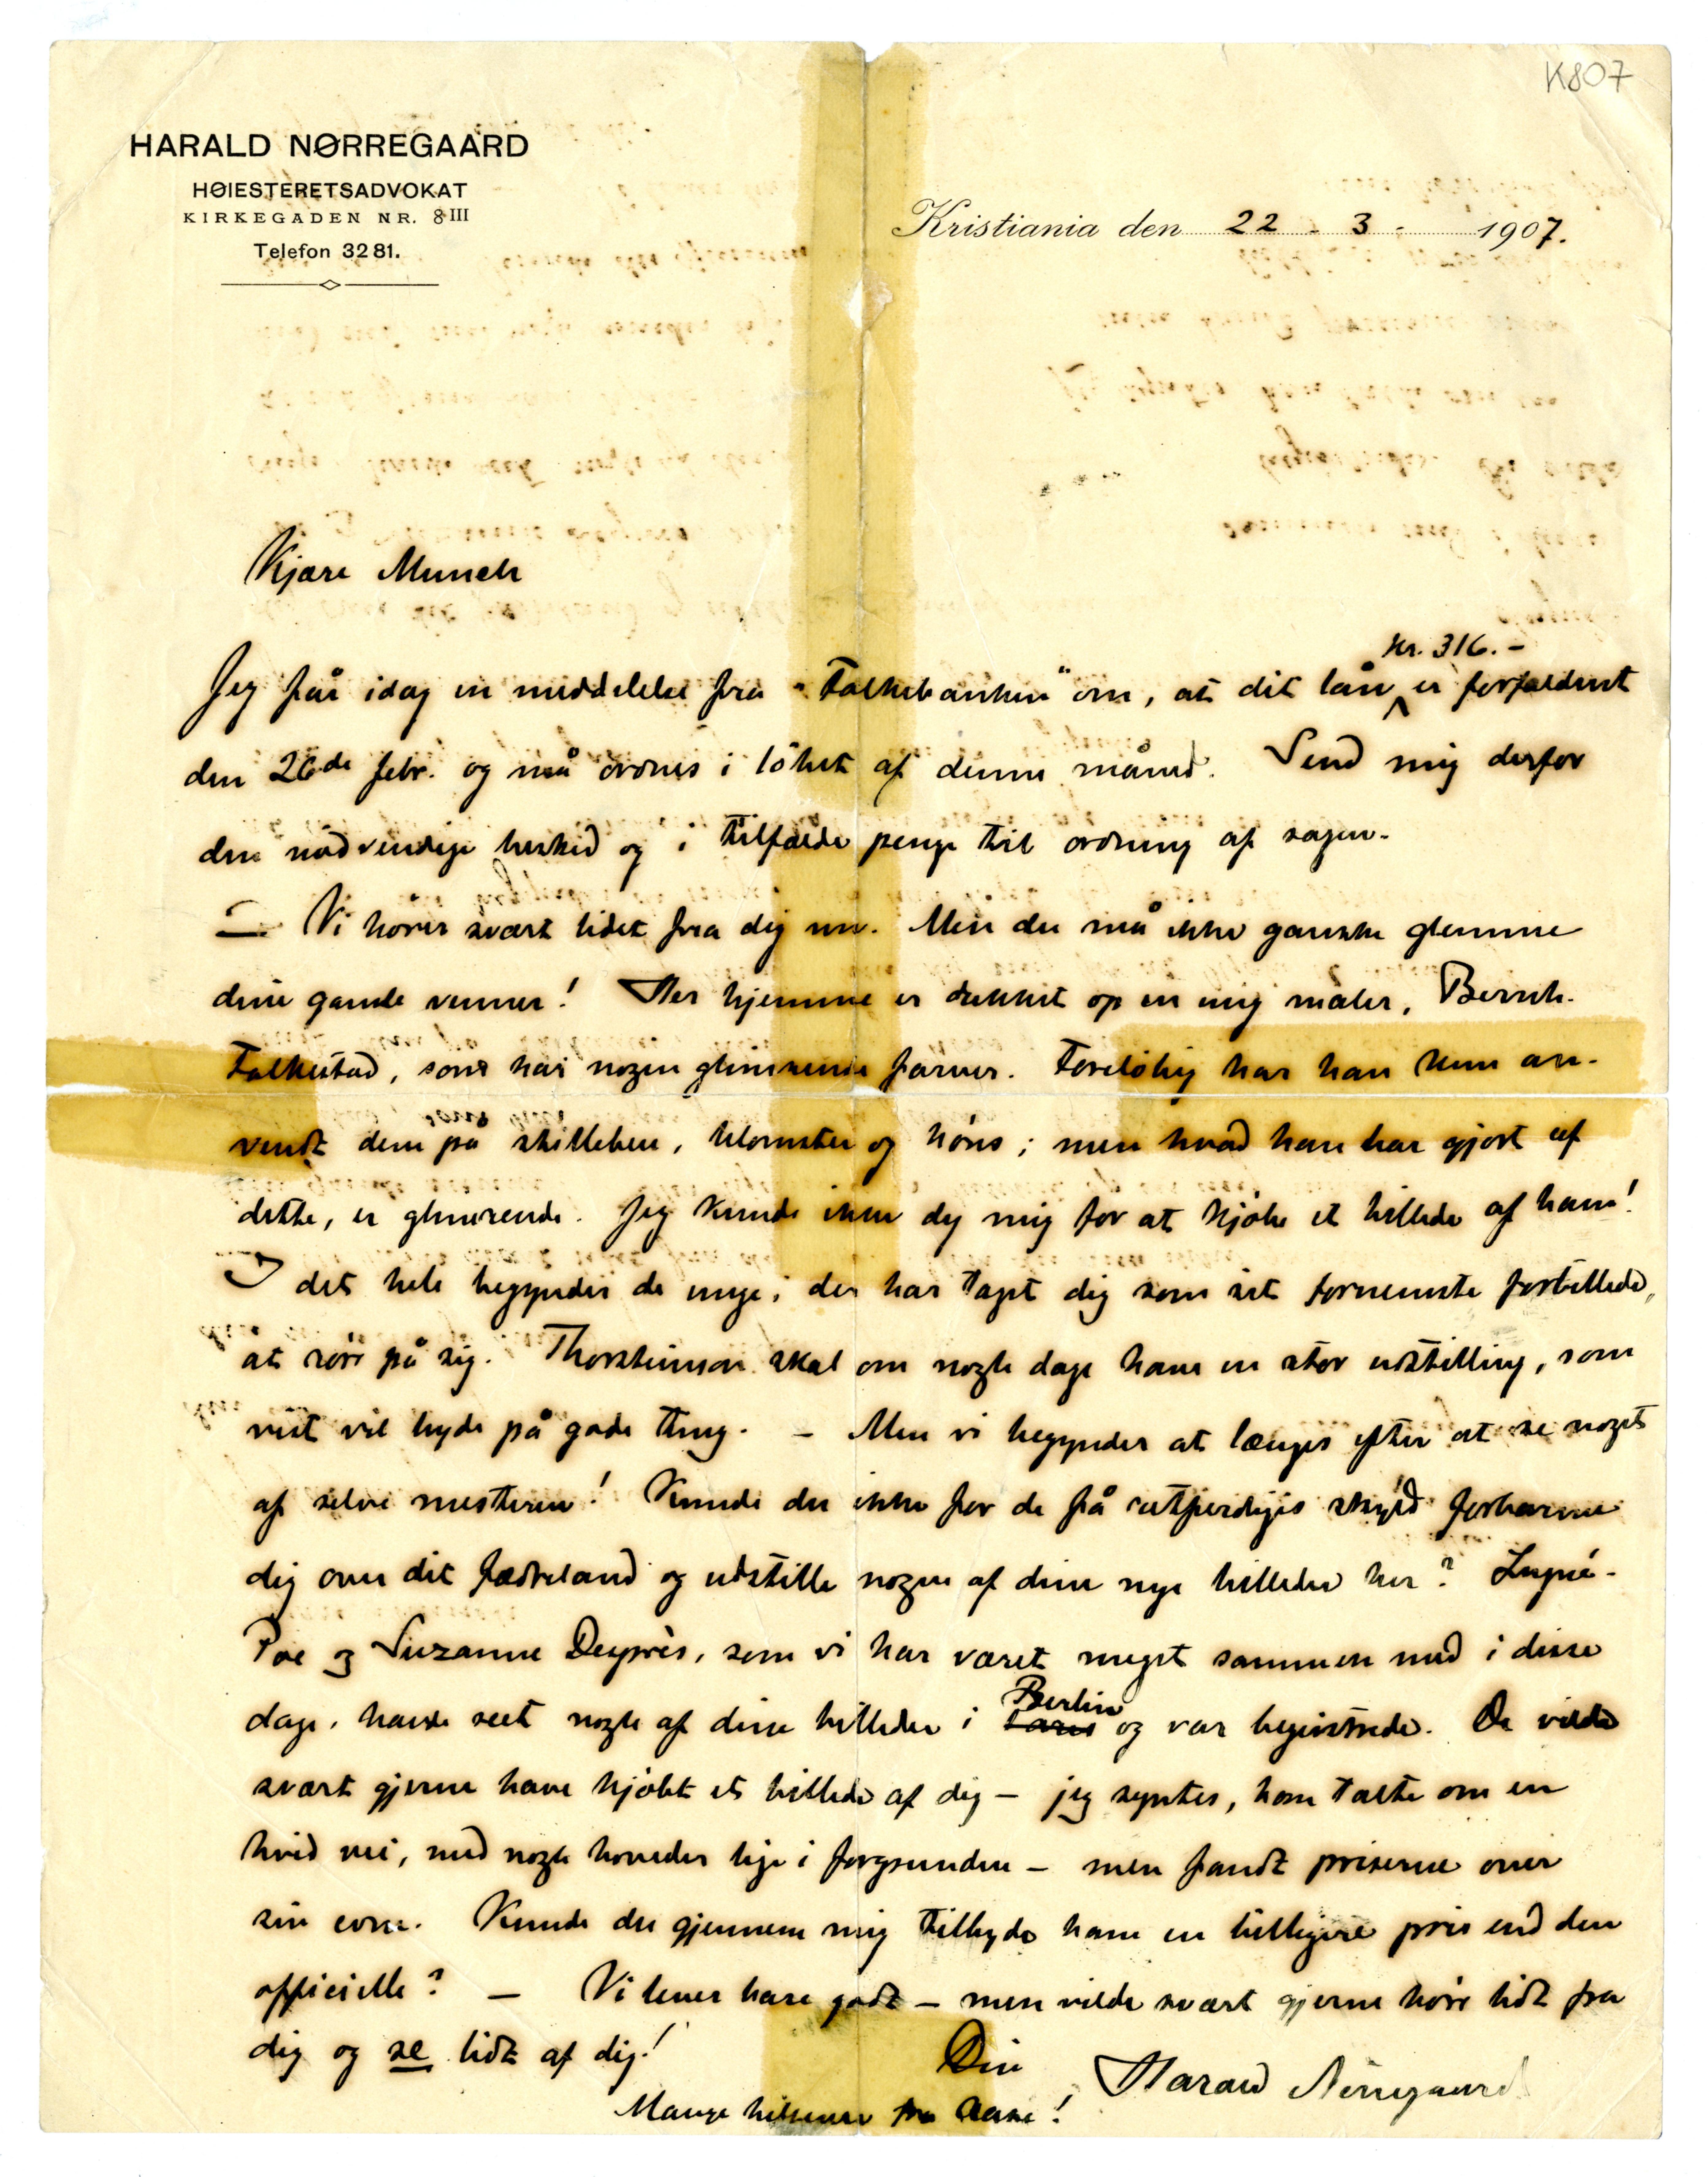 K807
HARALD NØRREGAARD
HØIESTERETSADVOKAT
KIRKEGADEN NR. 8 III
Telefon 3281.
Kristiania den 22 - 3 - 1907.
Kjære Munch
kr. 316.-
Jeg får idag en meddelelse fra "Folkebanken" om, at dit lån er forfaldent
den 26de febr. og må ordnes i löbet af denne måned. Send mig derfor
den nødvendige besked og i tilfælde penge til ordning af sagen.
— Vi hører svært lidet fra dig nu. Men du må ikke ganske glemme
dine gamle venner! Her hjemme er dukket op en ung maler, Bernh.
Folkestad, som har nogen glimrende farver. Foreløbig har han kun an-
vendt dem på stilleben, blomster og høns; men hvad han har gjort af
dette, er glimrende. Jeg kunde ikke dy mig for at kjøbe et billede af ham!
I det hele begynder de unge, der har taget dig som sit fornemste forbillede,
at röre på sig. Thorsteinson skal om nogle dage have en stor udstilling, som
vist vil byde på gode ting. - Men vi begynder at længes efter at se noget
af selve mesteren! Kunde du ikke for de få retfærdiges skyld forbarme
dig over dit fædreland og udstille nogen af dine nye billeder her? Lugné-
Poe og Suzanne Desprès, som vi har været meget sammen med i disse
dage, havde seet nogle af dine billeder i Paris Berlin og var begeistrede. De vilde
svært gjerne have kjøbt et billede af dig - jeg syntes, han talte om en
hvid vei, med nogle hoveder lige i forgrunden - men fandt priserne over
sin evne. Kunde du gjennem mig tilbyde ham en billigere pris end den
officielle? — Vi lever bare godt - men vilde svært gjerne høre lidt fra
dig og se lidt af dig!
Din
Harald Nørregaard
Mange hilsener fra Aase!